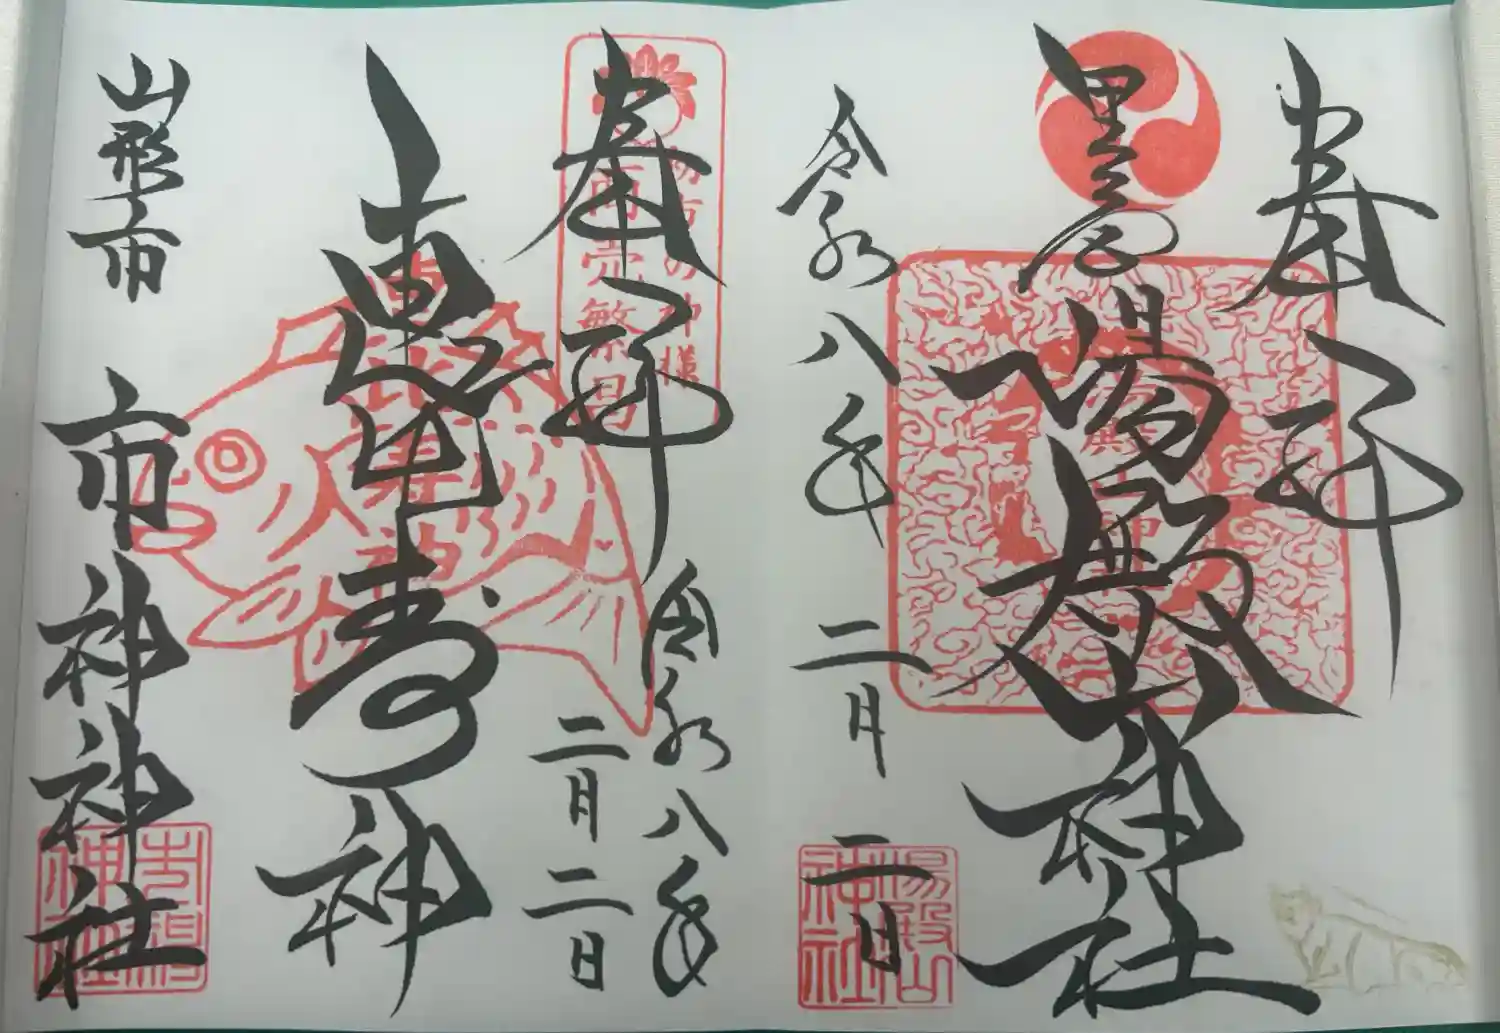 奉拝
里之宮
湯殿山神社
令和八年二月二日
湯殿山神社
奉拝
初市の神様
商売繁昌
令和八年
二月二日
恵比寿神
山形市 市神神社